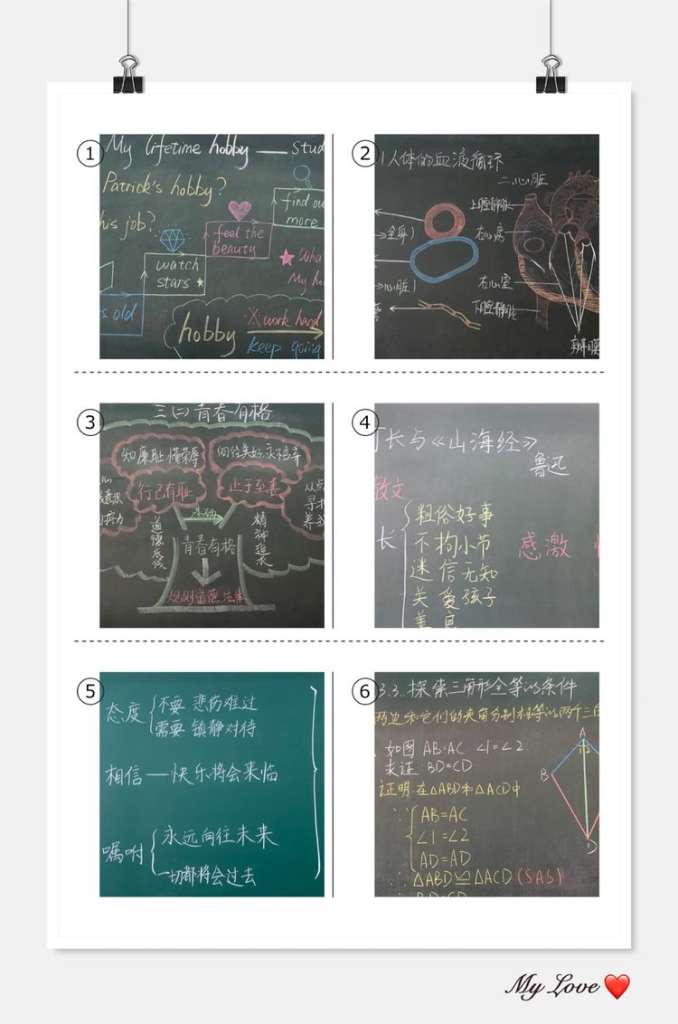 ①
My lifetime hobby — Stud
Patrick's hobby?
his job?
find ou
more
feel the
beauty
watch
stars
Wha
My h
s old
hobby
X work hard
keep going
②
人体的血液循环
二.心脏
上腔静脉
右心房
右心室
下腔静脉
全身)
心脏)
③
三(二)青春有格
知廉耻 懂荣辱
行己有耻
止于至善
青春有格
精神追求
④
长与《山海经》
鲁迅
散文
长
粗俗好事
不拘小节
迷信无知
关爱孩子
感激
⑤
态度
不要 悲伤难过
需要 镇静对待
相信 — 快乐将会来临
嘱咐
永远向往未来
一切都将会过去
⑥
3.3.探索三角形全等的条件
两边和它们的夹角分别相等的两个三角
如图 AB=AC ∠1=∠2
求证 BD=CD
证明:在△ABD和△ACD中
AB=AC
∠1=∠2
AD=AD
△ABD≌△ACD (SAS)
BD=CD
A
1 2
B
D
My Love ❤️